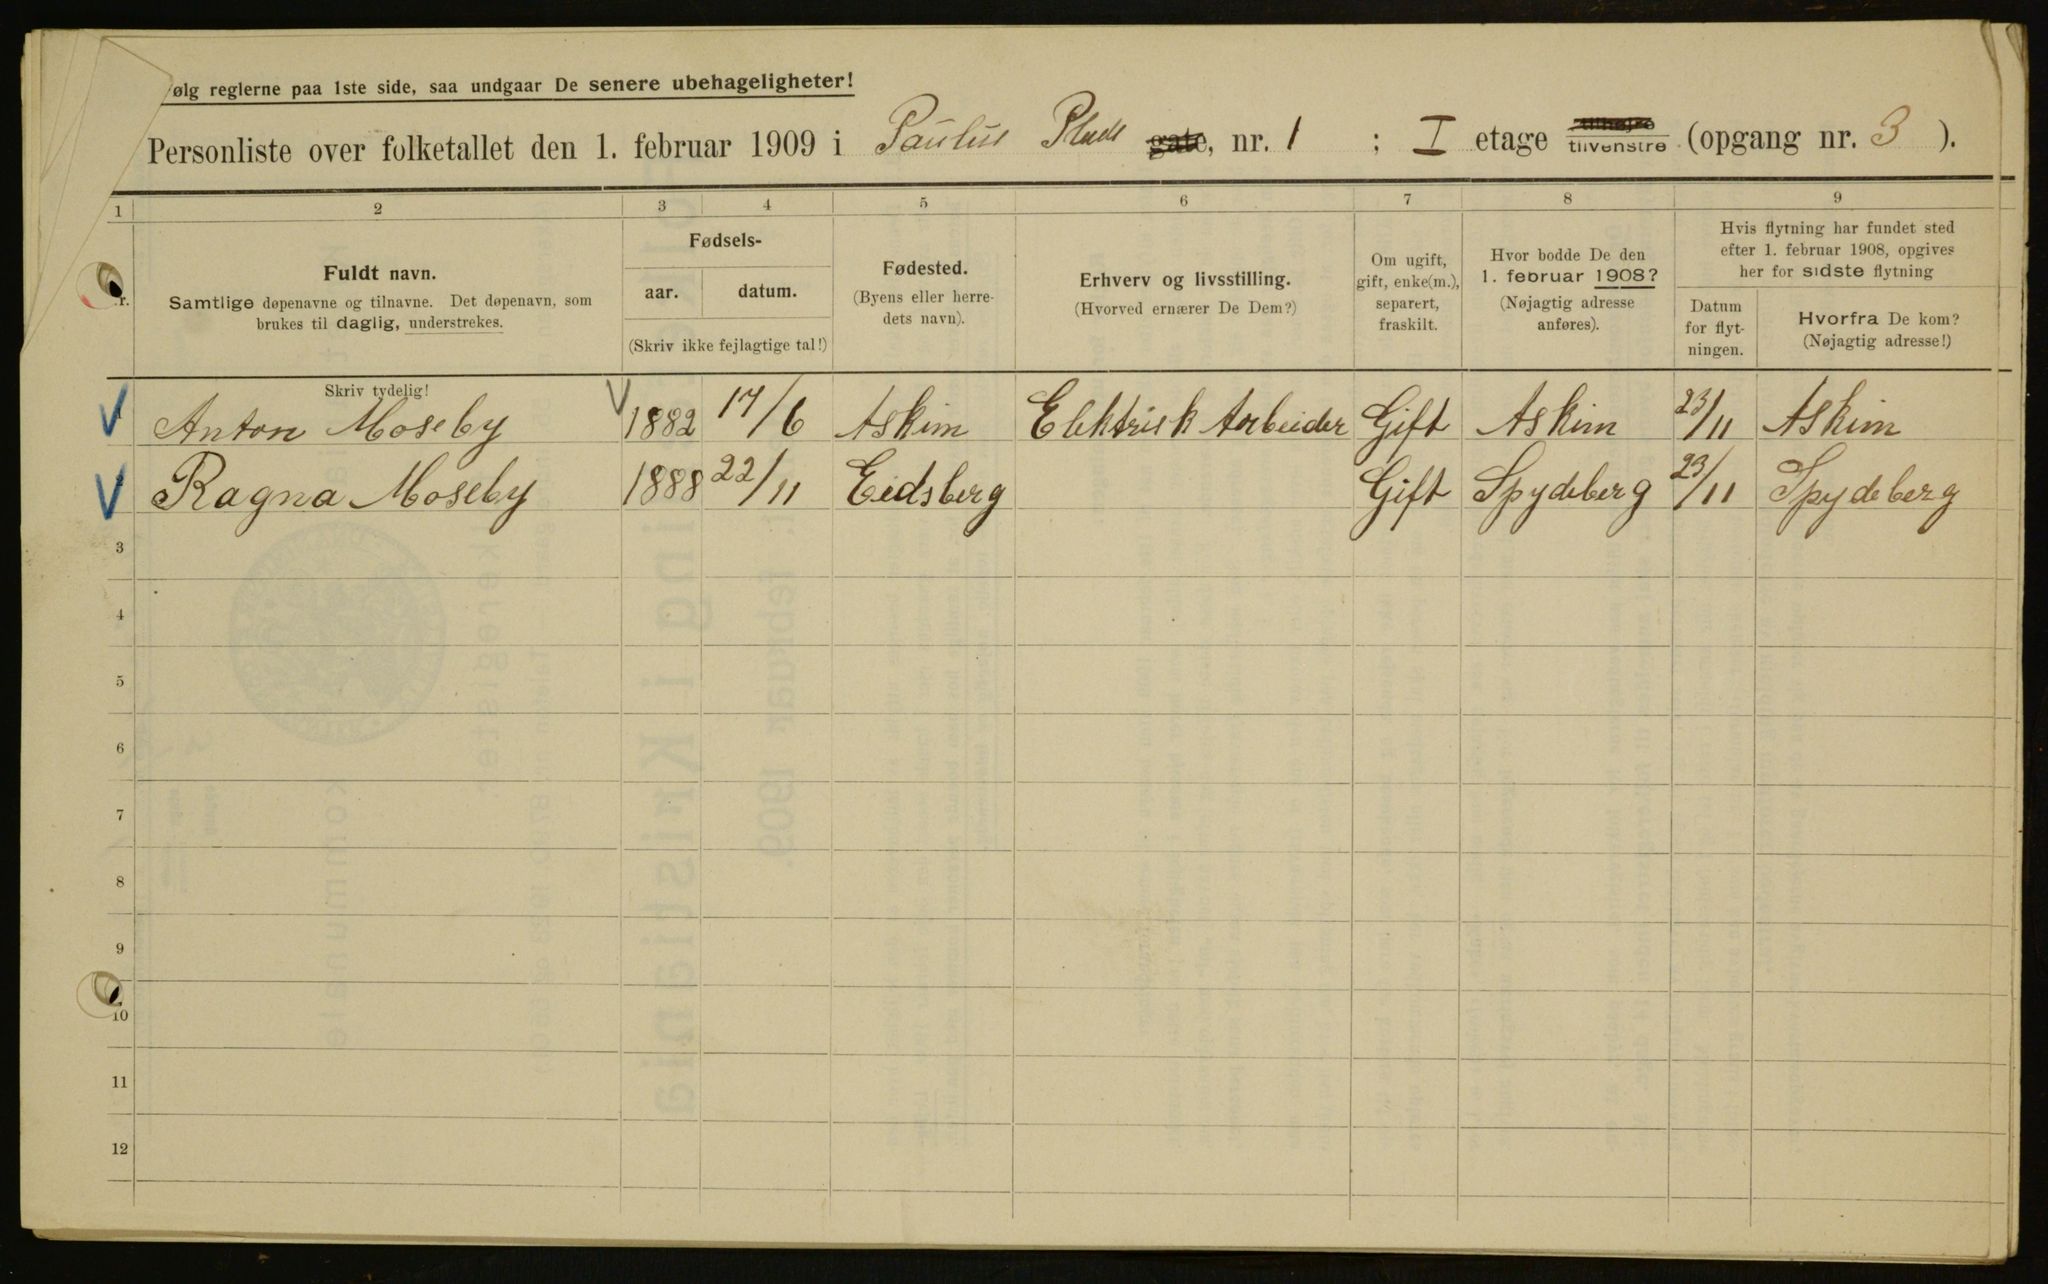 ølg reglerne paa 1ste side, saa undgaar De senere ubehageligheter!
Personliste over folketallet den 1. februar 1909 i Paulus Plads gate, nr. 1 ; I etage tilhøjre tilvenstre (opgang nr. 3 ).
1 2 3 4 5 6 7 8 9
r.
Fuldt navn.
Samtlige døpenavne og tilnavne. Det døpenavn, som
brukes til daglig, understrekes.
Skriv tydelig!
Fødsels-
aar. datum.
(Skriv ikke fejlagtige tal!)
Fødested.
(Byens eller herre-
dets navn).
Erhverv og livsstilling.
(Hvorved ernærer De Dem?)
Om ugift,
gift, enke(m.),
separert,
fraskilt.
Hvor bodde De den
1. februar 1908?
(Nøjagtig adresse
anføres).
Hvis flytning har fundet sted
efter 1. februar 1908, opgives
her for sidste flytning
Datum
for flyt-
ningen.
Hvorfra De kom?
(Nøjagtig adresse!)
1 Anton Moseby 1882 17/6 Askim Elektrisk Arbeider Gift Askim 23/11 Askim
Ragna Moseby 1888 22/11 Eidsberg Gift Spydeberg 23/11 Spydeberg
3
4
5
6
7
8
9
10
11
12